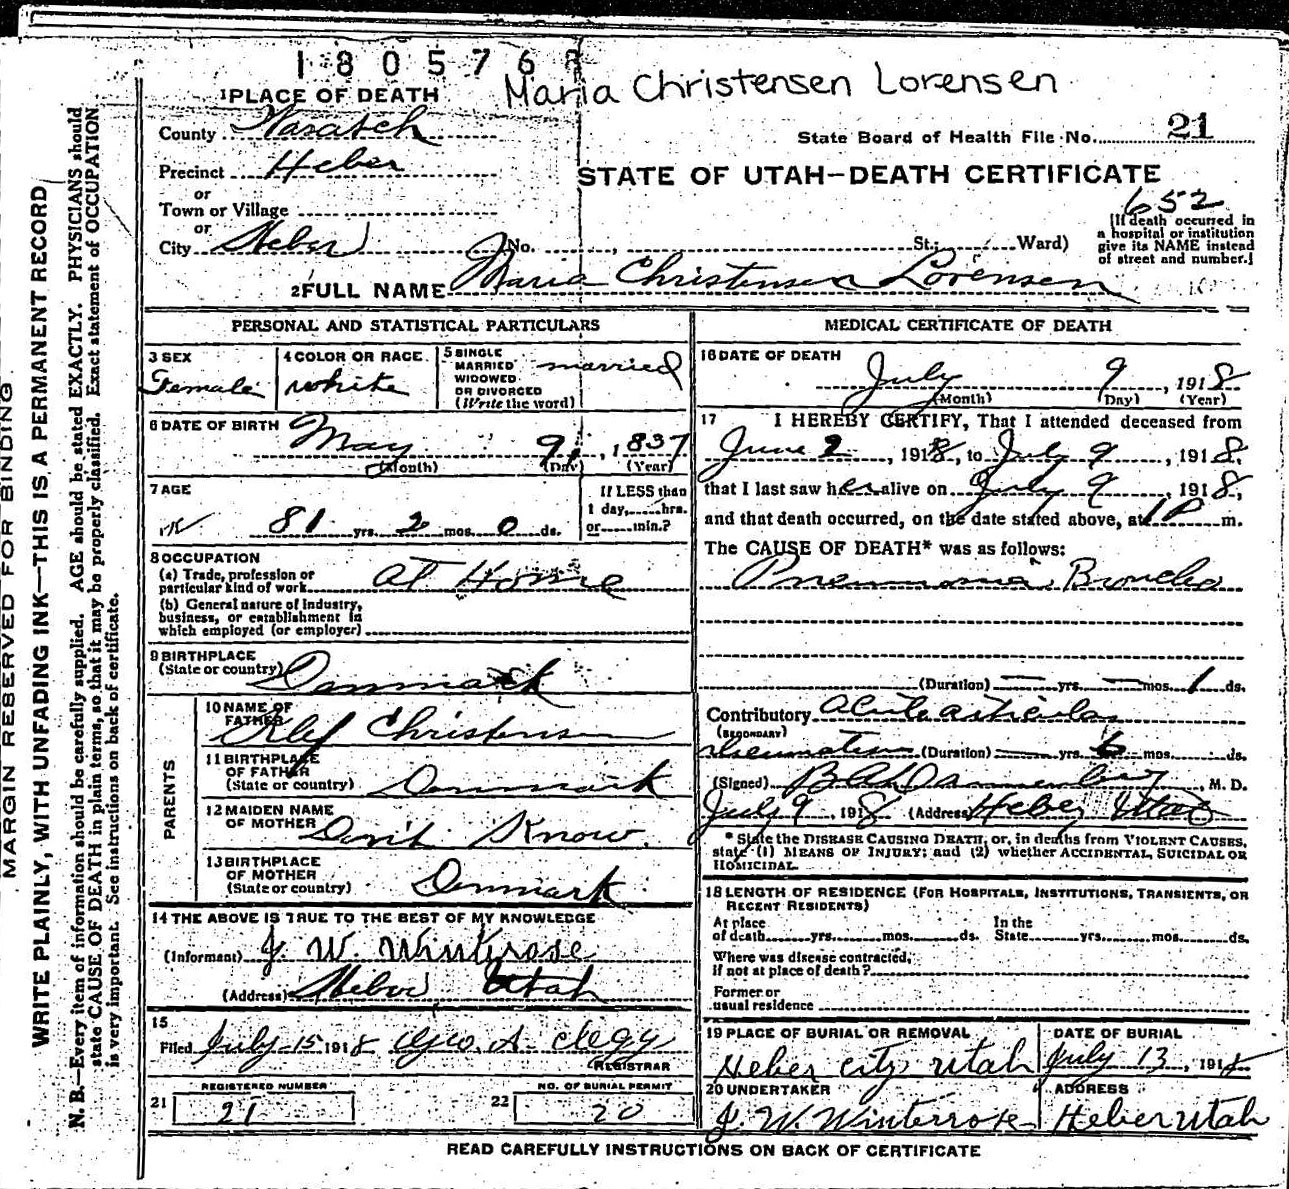 1805768
Maria Christensen Lorensen
1 PLACE OF DEATH
County Wasatch
State Board of Health File No. 21
Precinct Heber
STATE OF UTAH—DEATH CERTIFICATE
or
Town or Village
652
or
City Heber No. St.; Ward)
[If death occurred in
a hospital or institution
give its NAME instead
of street and number.]
2 FULL NAME Maria Christensen Lorensen
PERSONAL AND STATISTICAL PARTICULARS
3 SEX
Female
4 COLOR OR RACE
white
5 SINGLE
MARRIED
WIDOWED
OR DIVORCED
(Write the word)
married
6 DATE OF BIRTH May 9, 1837
(Month) (Day) (Year)
7 AGE
81 yrs. 2 mos. 0 ds.
If LESS than
1 day, hrs.
or min.?
8 OCCUPATION
(a) Trade, profession or
particular kind of work At Home
(b) General nature of industry,
business, or establishment in
which employed (or employer)
9 BIRTHPLACE
(State or country) Denmark
PARENTS
10 NAME OF
FATHER Olef Christensen
11 BIRTHPLACE
OF FATHER
(State or country) Denmark
12 MAIDEN NAME
OF MOTHER Don't Know.
13 BIRTHPLACE
OF MOTHER
(State or country) Denmark
14 THE ABOVE IS TRUE TO THE BEST OF MY KNOWLEDGE
(Informant) J. W. Winterose
(Address) Heber Utah
15
Filed July 15 1918 Geo. A. Clegg
REGISTRAR
REGISTERED NUMBER
21 21
NO. OF BURIAL PERMIT
22 20
MEDICAL CERTIFICATE OF DEATH
16 DATE OF DEATH
July 9, 1918
(Month) (Day) (Year)
17 I HEREBY CERTIFY, That I attended deceased from
June 2, 1918, to July 9, 1918,
that I last saw her alive on July 9, 1918,
and that death occurred, on the date stated above, at 1 P m.
The CAUSE OF DEATH* was as follows:
Pneumonia, Broncho
(Duration) — yrs. — mos. 1 ds.
Contributory acute articular
(SECONDARY)
rheumatism (Duration) — yrs. 6 mos. ds.
(Signed) Dannenberg, M. D.
July 9, 1918 (Address) Heber Utah
* State the DISEASE CAUSING DEATH; or, in deaths from VIOLENT CAUSES,
state (1) MEANS OF INJURY; and (2) whether ACCIDENTAL, SUICIDAL OR
HOMICIDAL.
18 LENGTH OF RESIDENCE (FOR HOSPITALS, INSTITUTIONS, TRANSIENTS, OR
RECENT RESIDENTS)
At place
of death yrs. mos. ds.
In the
State yrs. mos. ds.
Where was disease contracted,
if not at place of death?
Former or
usual residence
19 PLACE OF BURIAL OR REMOVAL
Heber city, Utah
DATE OF BURIAL
July 13, 1918
20 UNDERTAKER
J. W. Winterrose
ADDRESS
Heber Utah
READ CAREFULLY INSTRUCTIONS ON BACK OF CERTIFICATE
MARGIN RESERVED FOR BINDING
WRITE PLAINLY, WITH UNFADING INK—THIS IS A PERMANENT RECORD
N. B.—Every item of information should be carefully supplied. AGE should be stated EXACTLY. PHYSICIANS should
state CAUSE OF DEATH in plain terms, so that it may be properly classified. Exact statement of OCCUPATION
is very important. See instructions on back of certificate.